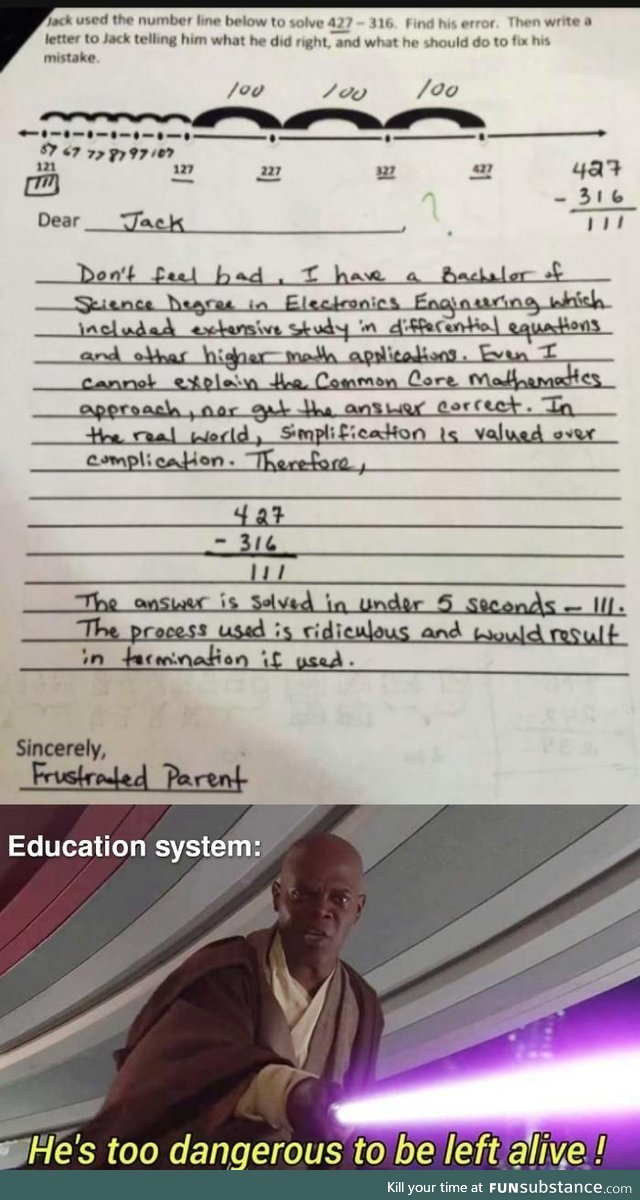 Jack used the number line below to solve 427 – 316. Find his error. Then write a
letter to Jack telling him what he did right, and what he should do to fix his
mistake.
100 100 100
57 67 77 87 97 107
121 127 227 327 427
111
427
- 316
111
Dear Jack, ?
Don't feel bad. I have a Bachelor of
Science Degree in Electronics Engineering which
included extensive study in differential equations
and other higher math applications. Even I
cannot explain the Common Core Mathematics
approach, nor get the answer correct. In
the real world, simplification is valued over
complication. Therefore,
427
- 316
111
The answer is solved in under 5 seconds – 111.
The process used is ridiculous and would result
in termination if used.
Sincerely,
Frustrated Parent
Education system:
He's too dangerous to be left alive !
Kill your time at FUNsubstance.com